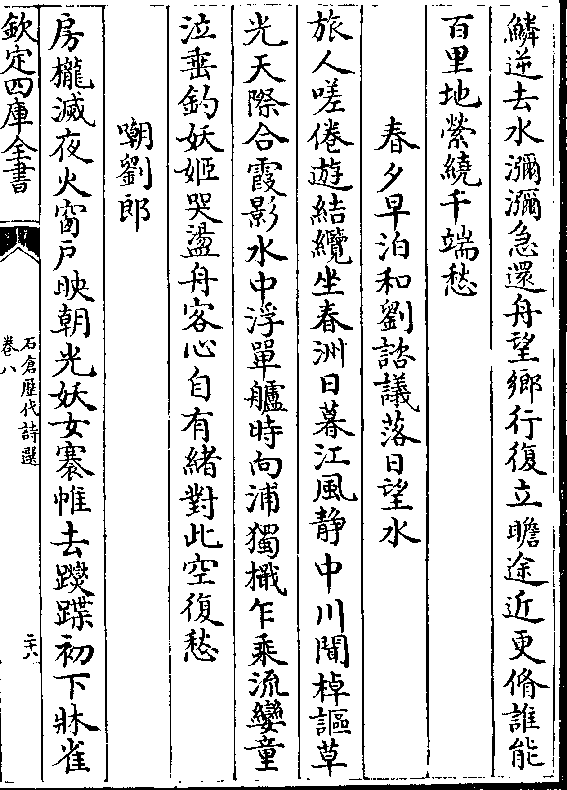 鱗逆去水瀰瀰急還舟望鄉行復立瞻途近更脩誰能
百里地縈繞千端愁
春夕早泊和劉諮議落日望水
旅人嗟倦遊結纜坐春洲日暮江風静中川聞棹謳草
光天際合霞影水中浮單艫時向浦獨檝乍乗流孌童
泣垂釣妖姬哭盪舟客心自有緒對此空復愁
嘲劉郎
房櫳滅夜火窗戸映朝光妖女褰帷去躞蹀初下牀雀
欽定四庫全書
石倉歴代詩選
卷八
二十八